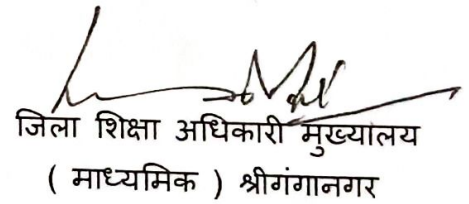 जिला शिक्षा अधिकारी मुख्यालय
( माध्यमिक ) श्रीगंगानगर